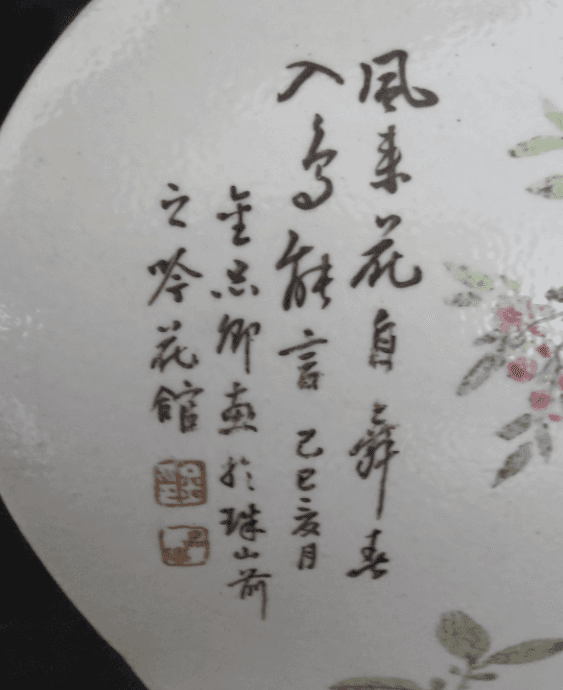 風来花自舞春
入鳥能言 己巳亥月
金品卿畫於珠山前
之吟花館